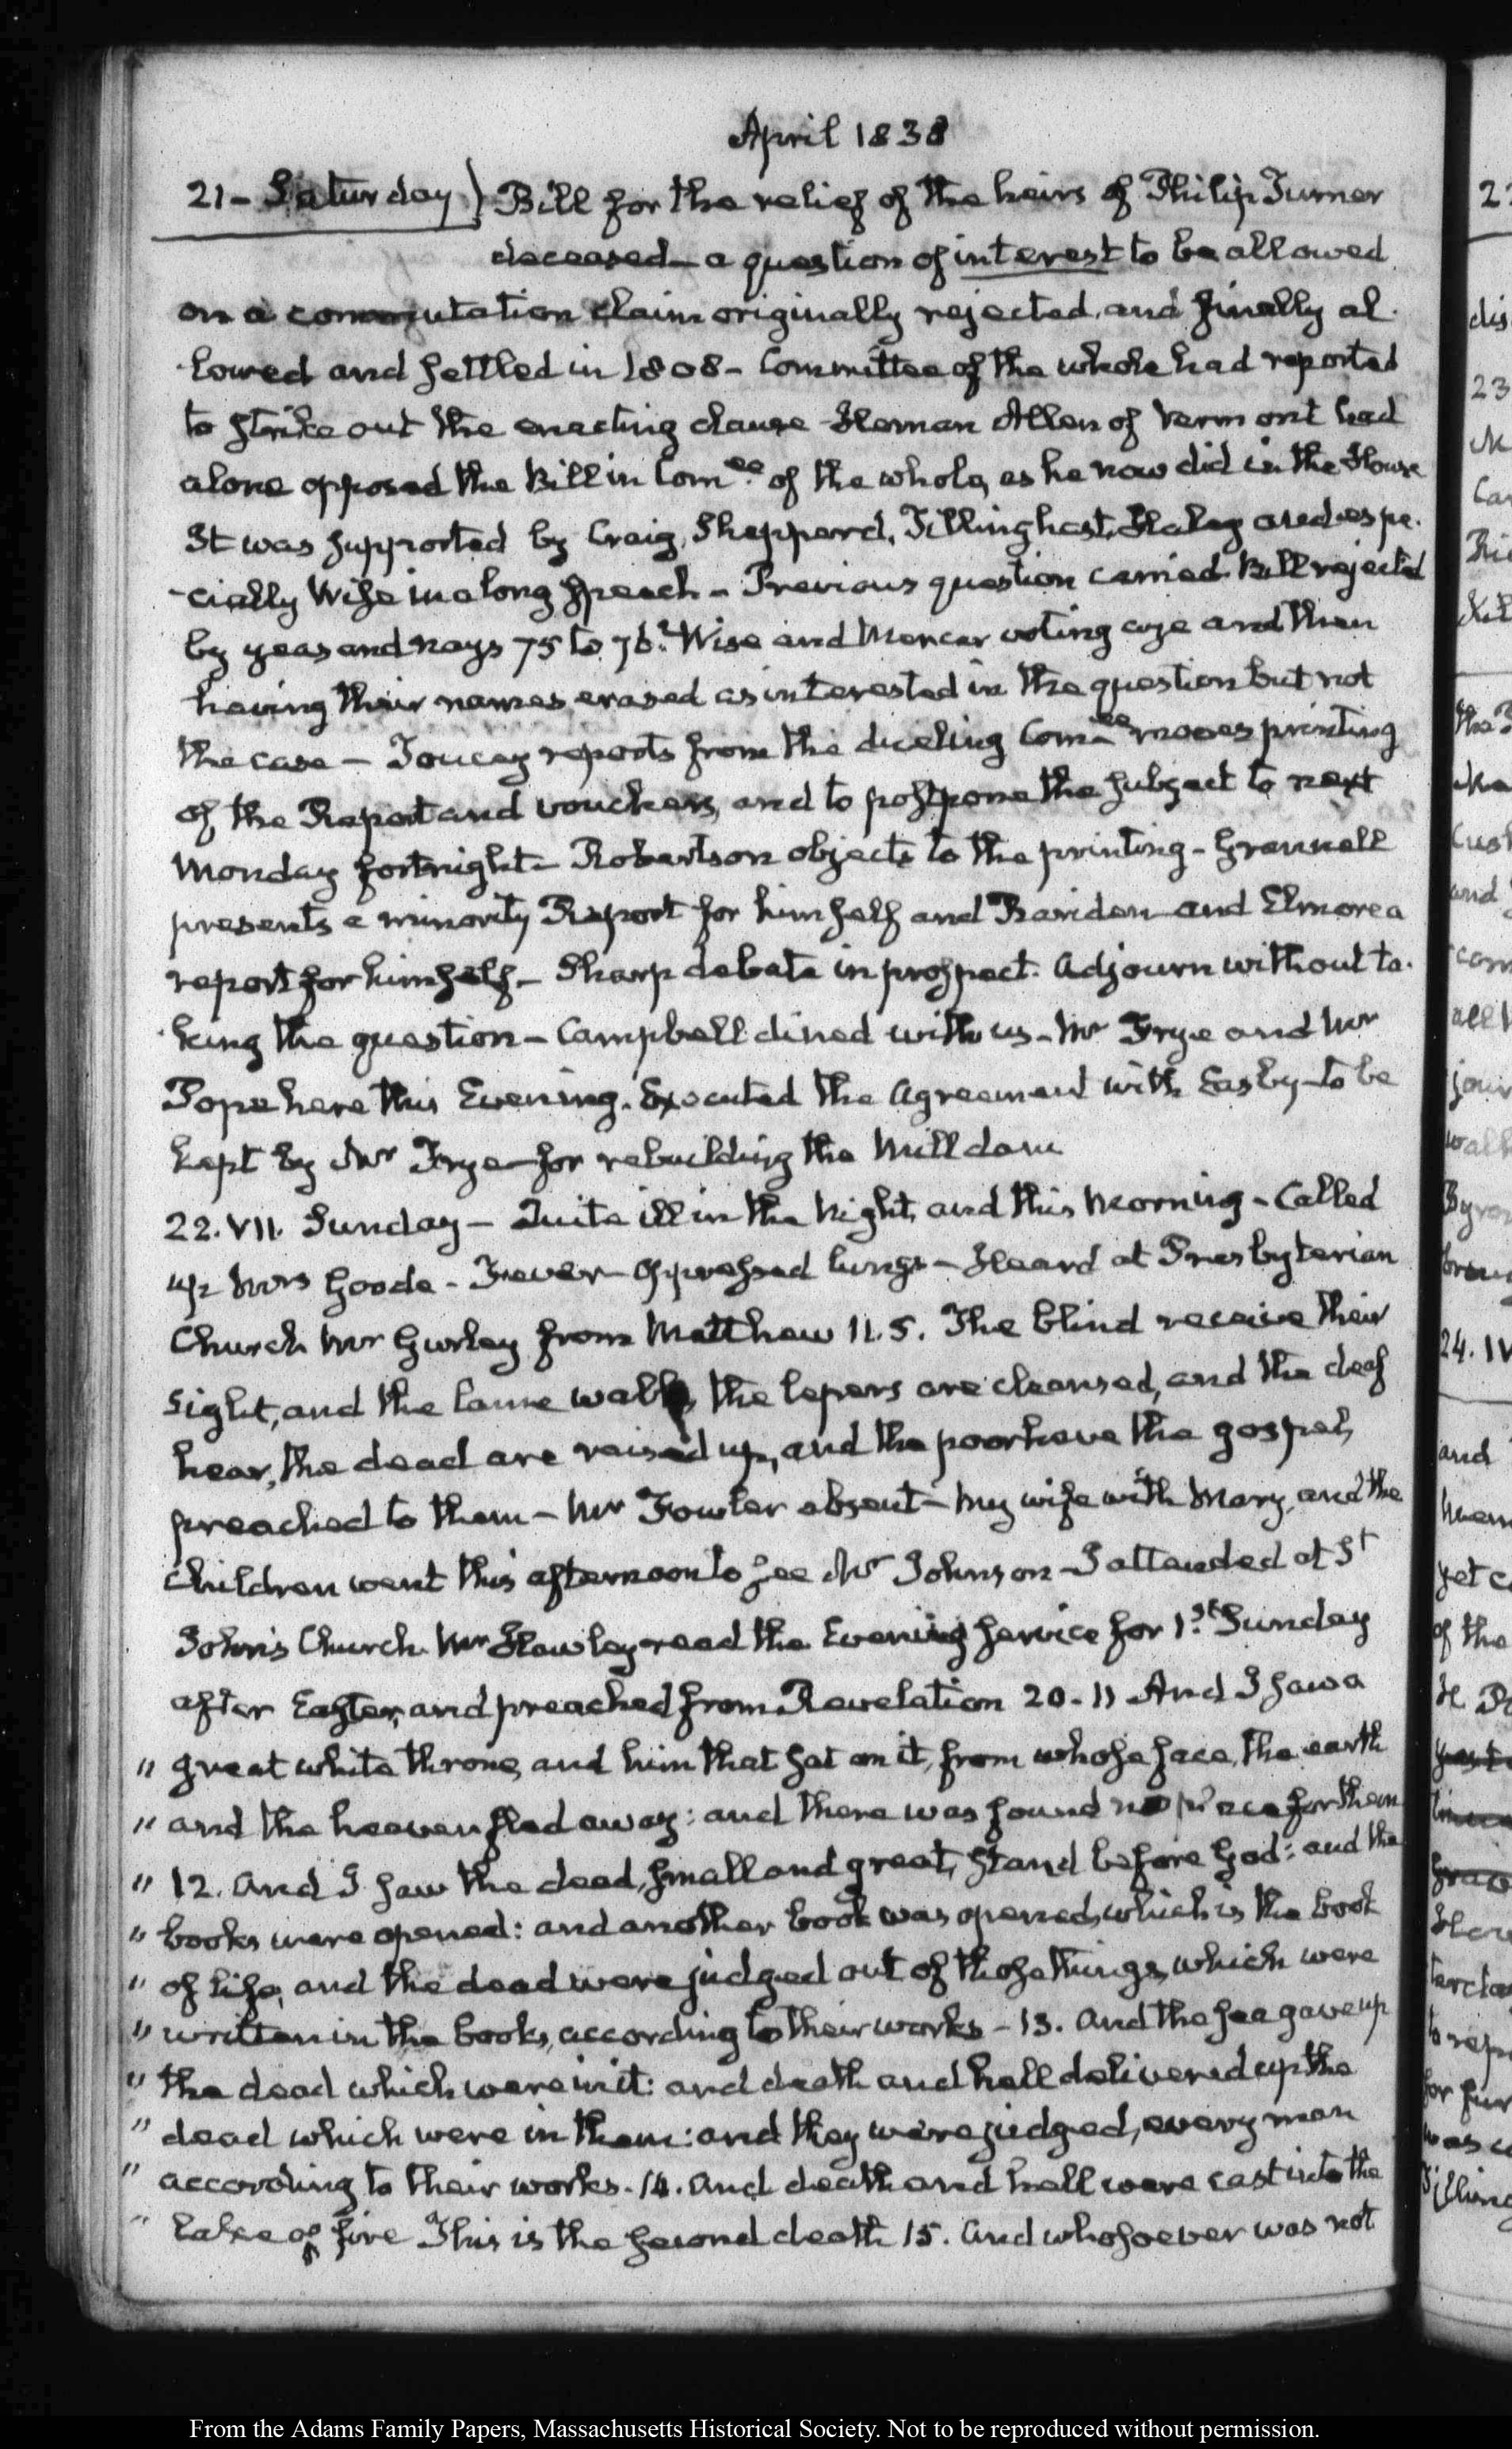 April 1838
21 - Saturday) Bill for the relief of the heirs of Philip Turner
deceased - a question of interest to be allowed
on a commutation claim originally rejected, and finally al-
-lowed and settled in 1808 - Committee of the whole had reported
to strike out the enacting clause - Heman Allen of Vermont had
alone opposed the Bill in Comee. of the whole, as he now did in the House
It was supported by Craig, Sheppard, Tillinghast, Haley and espe-
-cially Wise in a long speech - Previous question carried. Bill rejected
by yeas and nays 75 to 76. Wise and Mercer voting aye and then
having their names erased as interested in the question but not
the case - Toucey reports from the dueling Comee moves printing
of the Report and vouchers, and to postpone the subject to next
Monday fortnight - Robertson objects to the printing - Grennell
presents a minority Report for himself and Rariden and Elmore a
report for himself - Sharp debate in prospect. Adjourn without ta-
-king the question - Campbell dined with us - Mr Frye and Mr
Pope here this Evening. Executed the Agreement with Easby - to be
kept by Mr Frye - for rebuilding the Mill dam
22. VII. Sunday - Quite ill in the Night, and this Morning - Called
up Mrs Goods - Fever - Oppressed lungs - Heard at Presbyterian
Church Mr Gurley from Matthew 11. 5. The blind receive their
sight, and the lame walk, the lepers are cleansed, and the deaf
hear, the dead are raised up, and the poor have the gospel,
preached to them - Mr Fowler absent - My wife with Mary, and the
children went this afternoon to see Mr Johnson - I attended at St
John's Church. Mr Hawley read the Evening service for 1.st Sunday
after Easter, and preached from Revelation 20 - 11 And I saw a
" great white throne, and him that sat on it, from whose face, the earth
" and the heaven fled away: and there was found no place for them
" 12. And I saw the dead, small and great, stand before God: and the
" books were opened: and another book was opened, which is the book
" of life, and the dead were judged out of those things, which were
" written in the books, according to their works - 13. And the sea gave up
" the dead which were in it: and death and hell delivered up the
" dead which were in them: and they were judged, every man
" according to their works. 14. And death and hell were cast into the
" lake of fire This is the second death 15. And whosoever was not
From the Adams Family Papers, Massachusetts Historical Society. Not to be reproduced without permission.